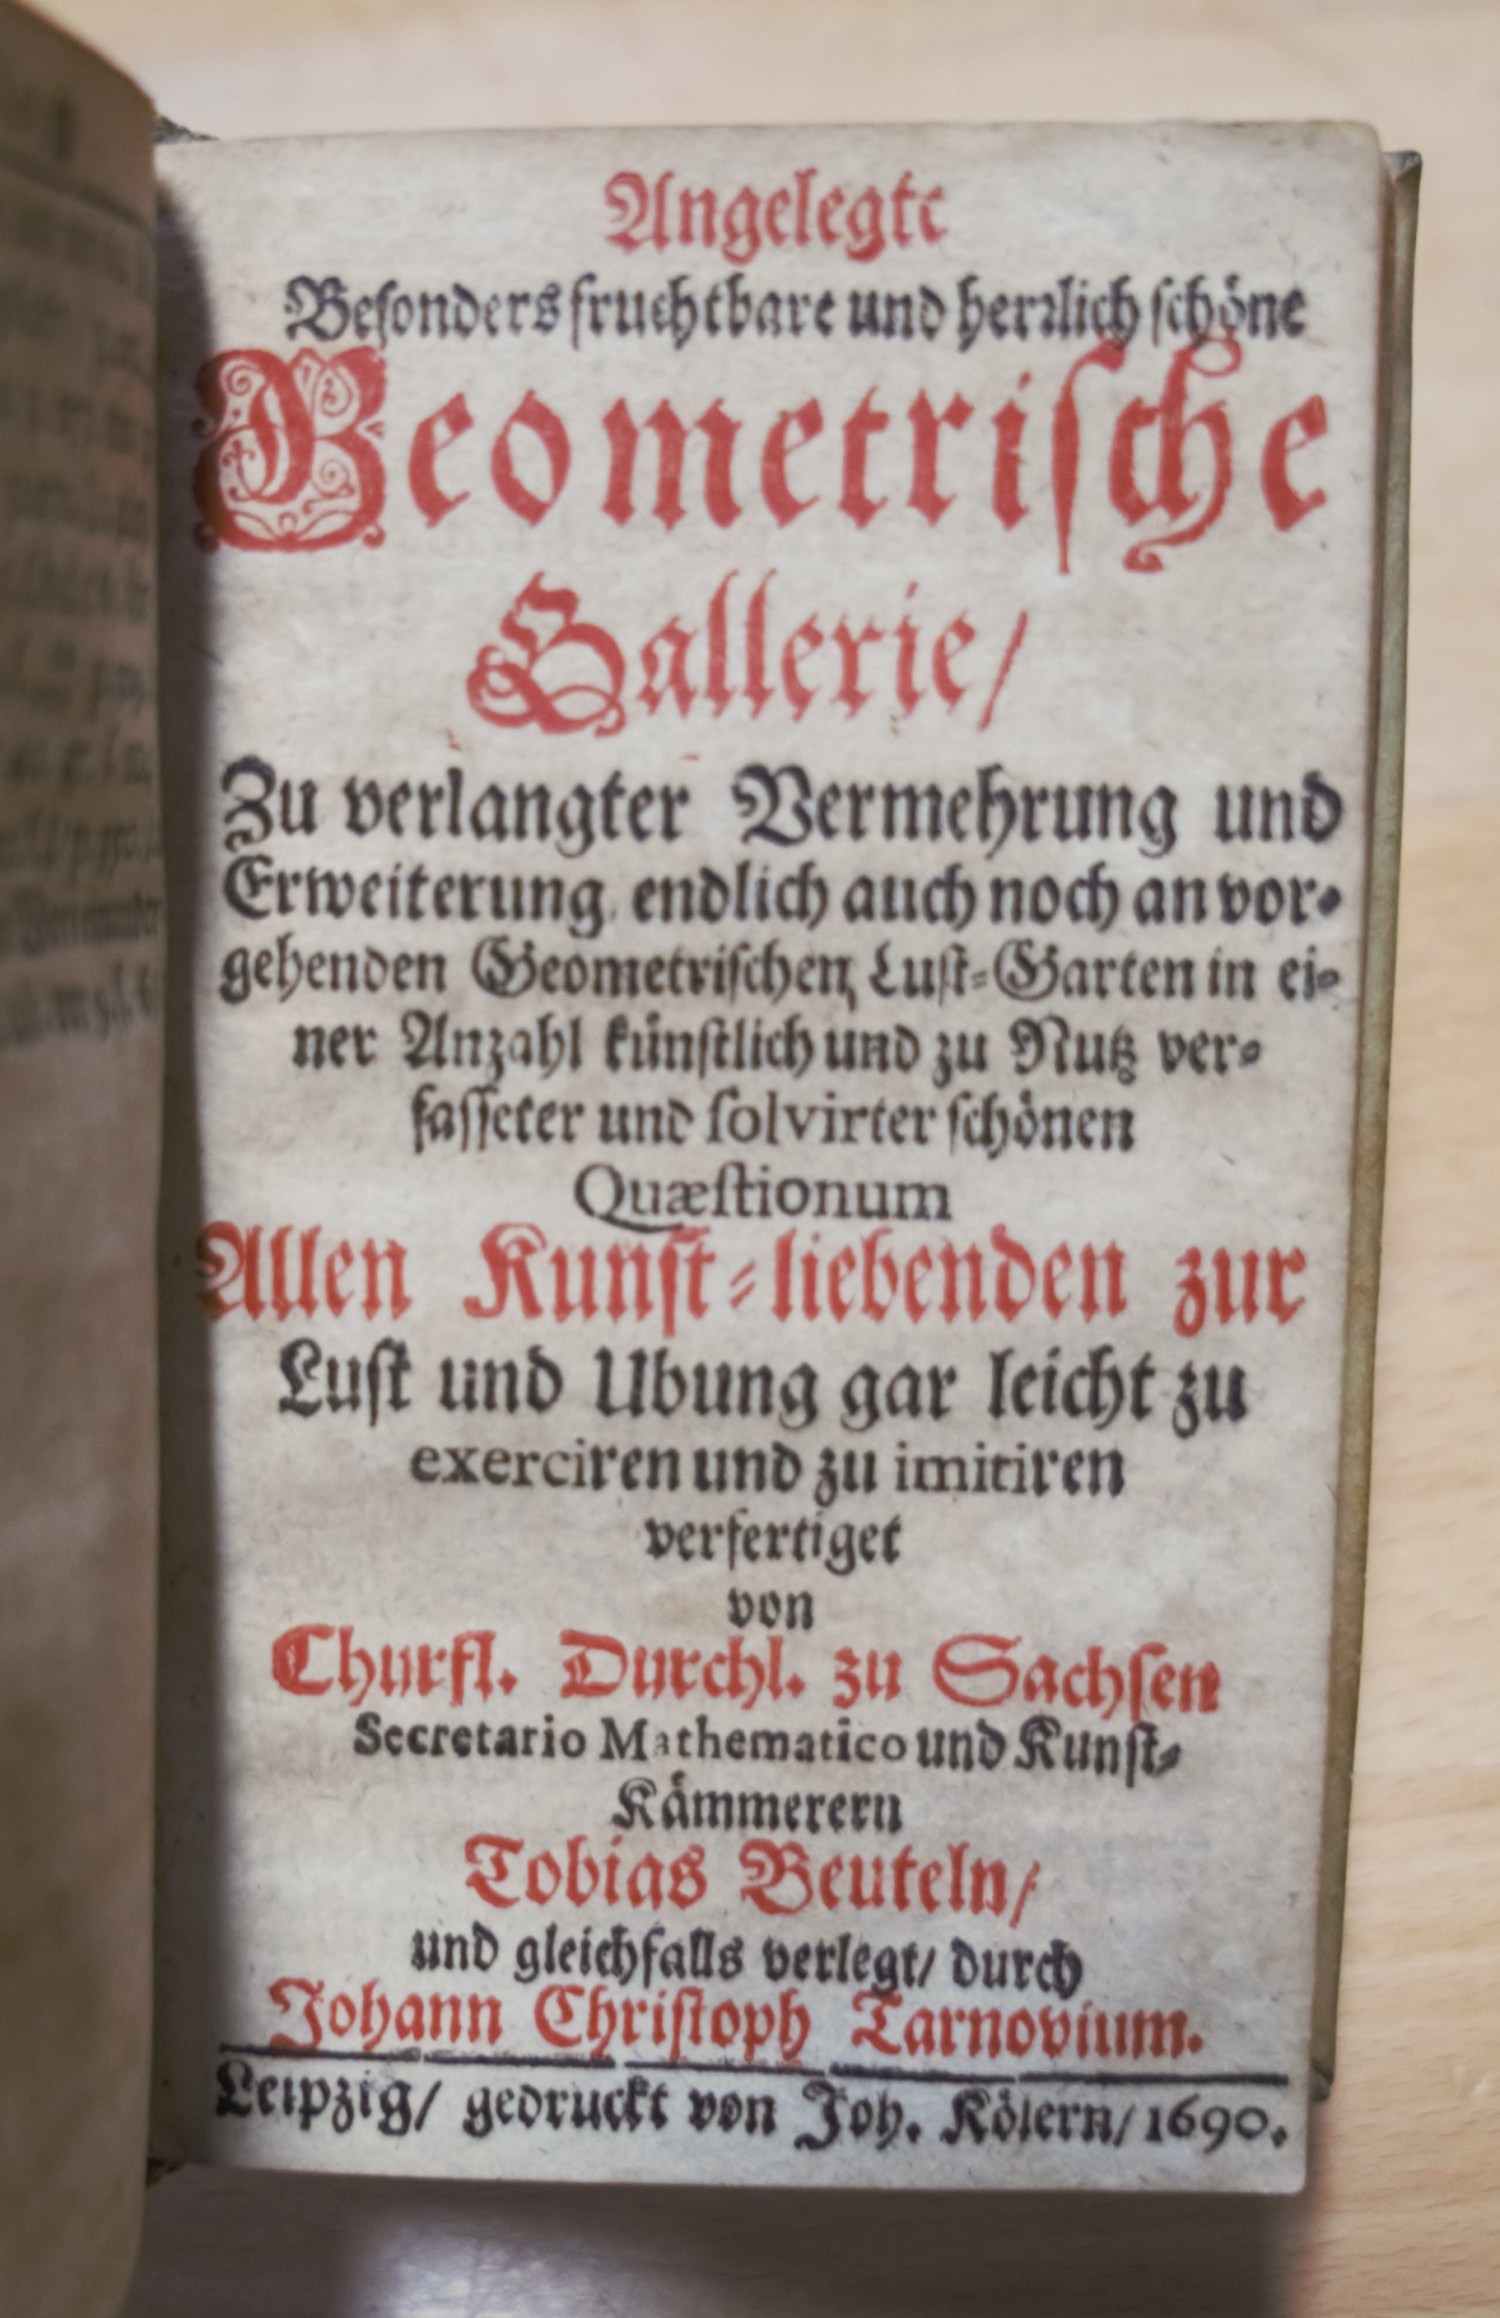 Angelegte
Besonders fruchtbare und hertzlich schöne
Geometrische
Gallerie/
Zu verlangter Vermehrung und
Erweiterung endlich auch noch an vor-
gehenden Geometrischen Lust-Garten in ei-
ner Anzahl künstlich und zu Nutz ver-
fasseter und solvirter schönen
Quæstionum
Allen Kunst-liebenden zur
Lust und Ubung gar leicht zu
exerciren und zu imitiren
verfertiget
von
Churfl. Durchl. zu Sachsen
Secretario Mathematico und Kunst-
Kämmerern
Tobias Beuteln/
und gleichfalls verlegt/ durch
Johann Christoph Tarnovium.
Leipzig/ gedruckt von Joh. Kölern/ 1690.